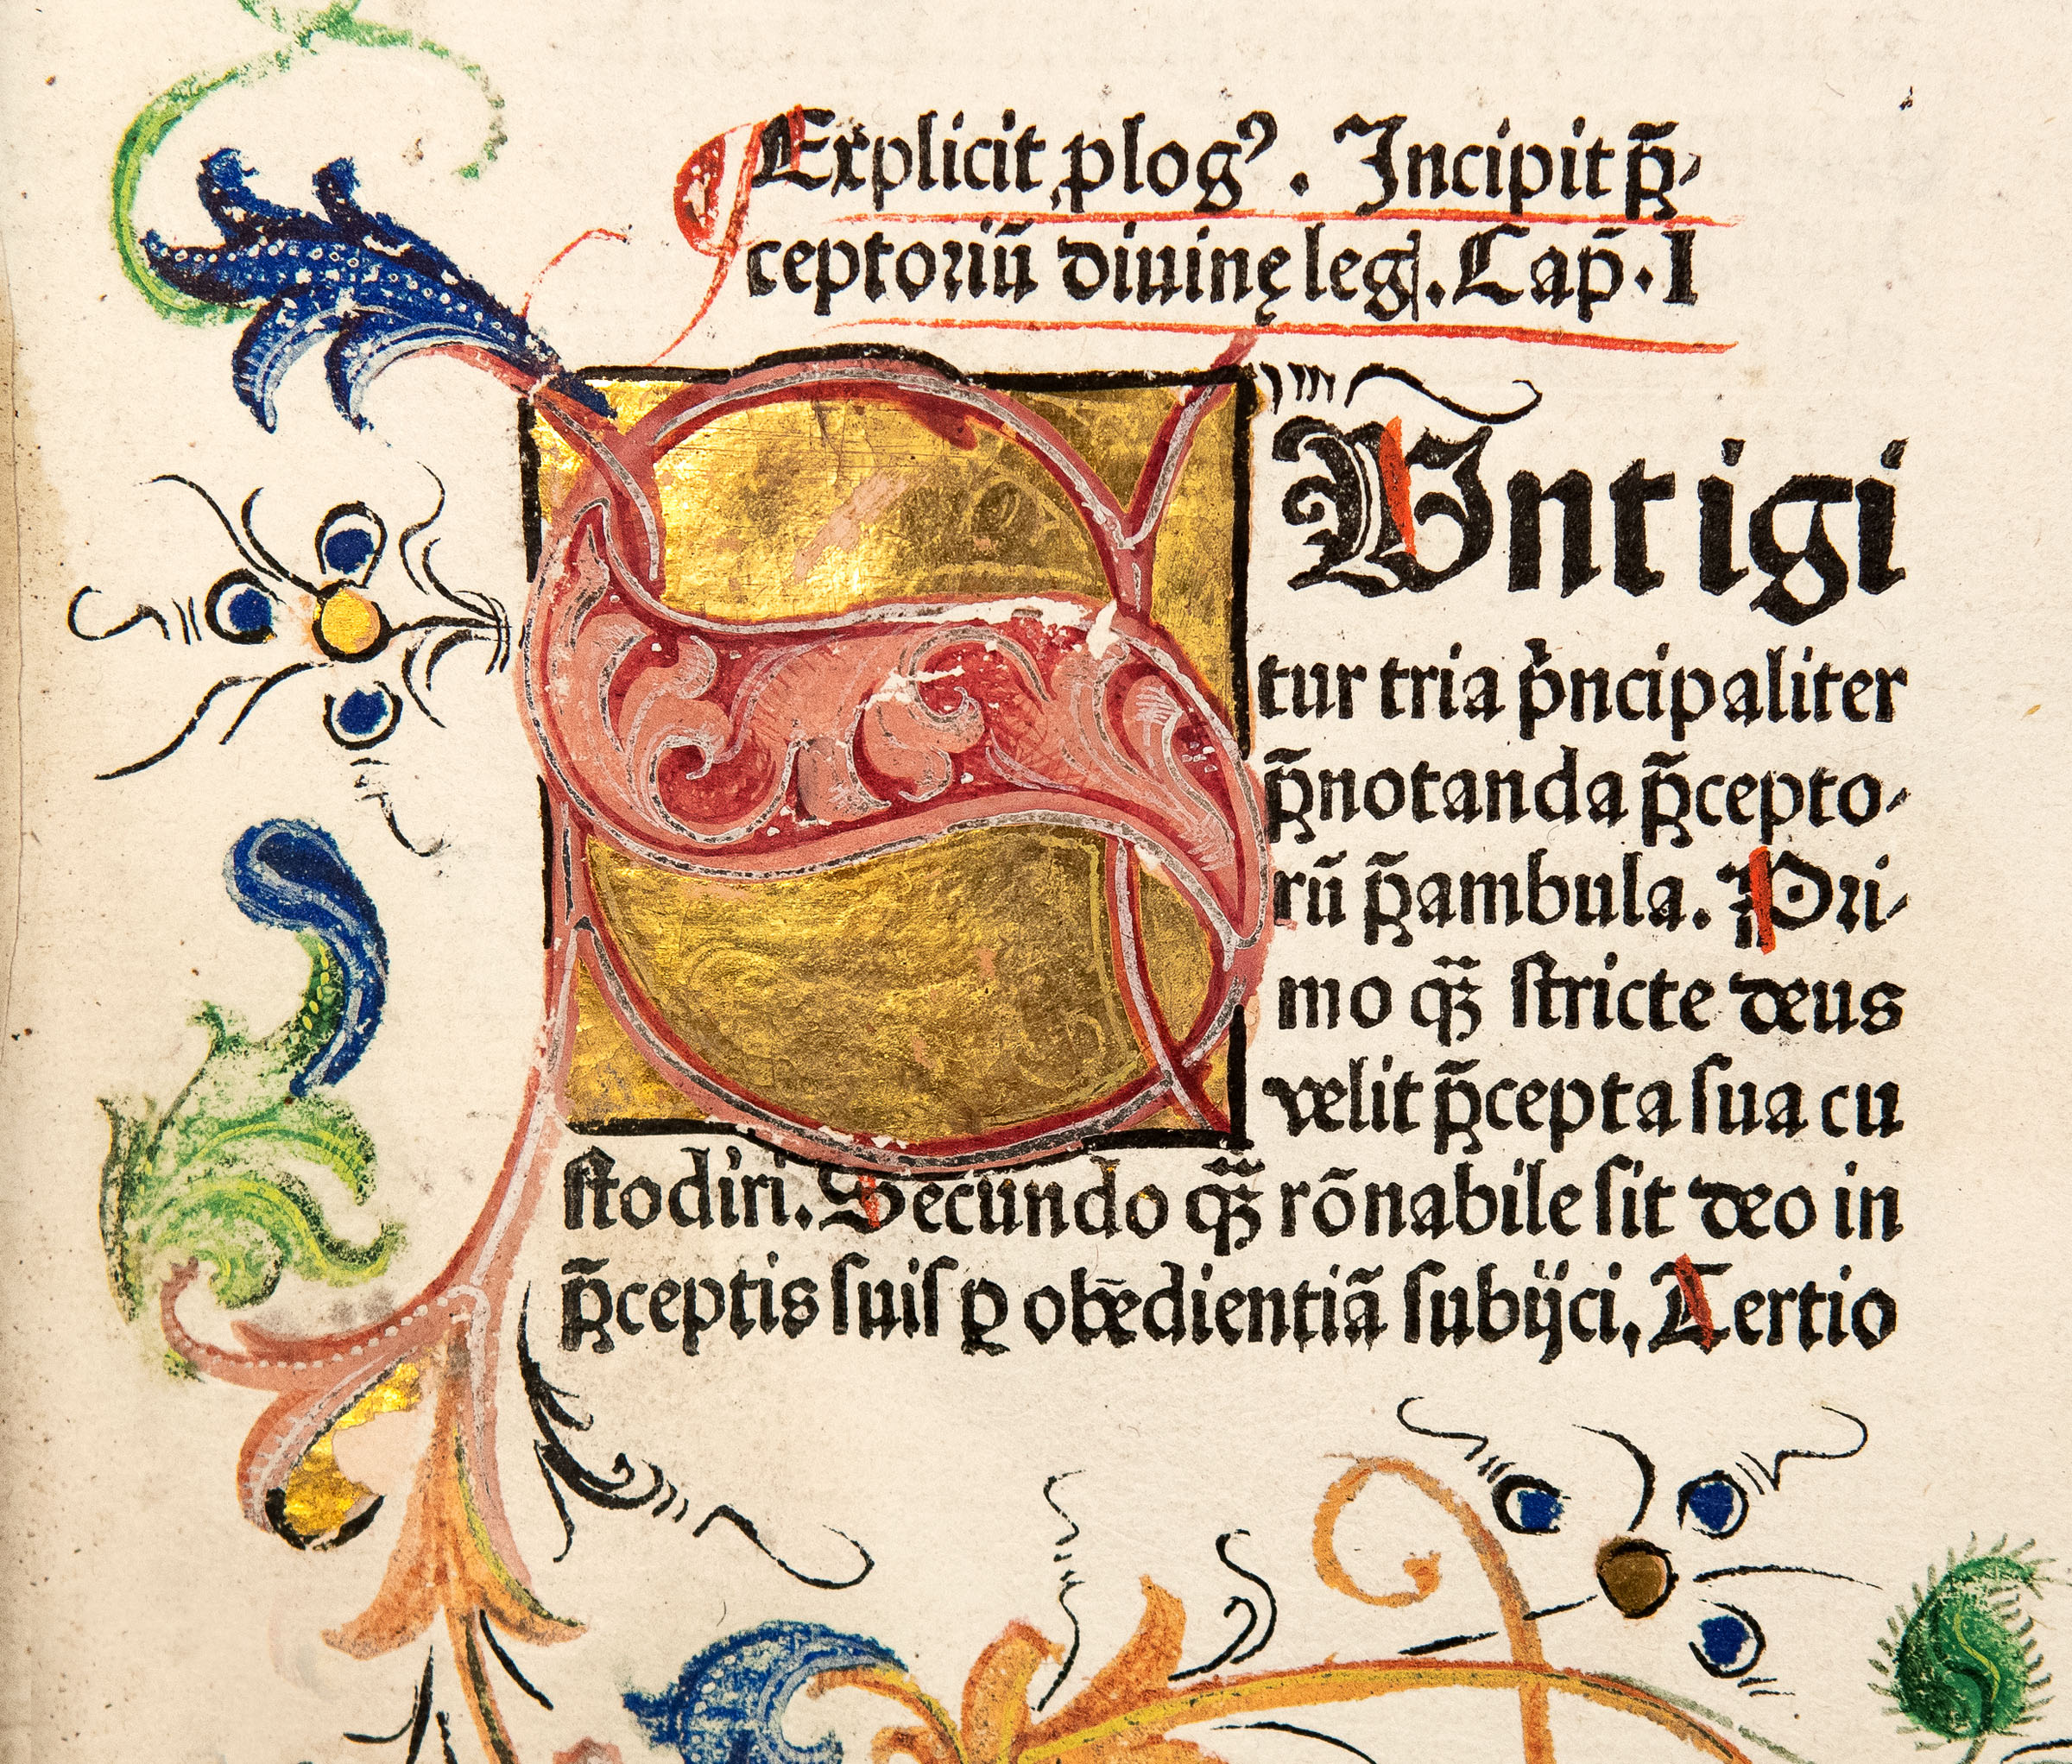 Explicit ꝓlogꝰ. Incipit p̄-
ceptoriū diuinę legꝭ. Cap̄. I
SUntigi
tur tria pͥncipaliter
p̄notanda p̄cepto-
rū p̄ambula. Pri-
mo qꝫ ſtricte deus
velit p̄cepta ſua cu
ſtodiri. Secundo qꝫ rōnabile ſit deo in
p̄ceptis ſuiſ ꝑ obēdientiā ſubijci. Tertio